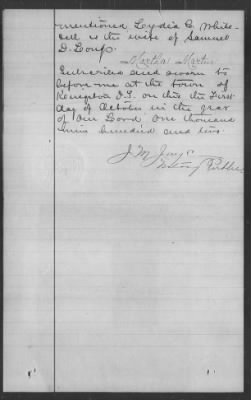 mentioned Lydia C. White-
sell is the wife of Samuel
D. Long.
Martha Martin
Subscribed and sworn to
before me at the town of
Remington I.T. on this the First
day of October in the year
of Our Lord One thousand
nine hundred and two.
J M
Notary Public